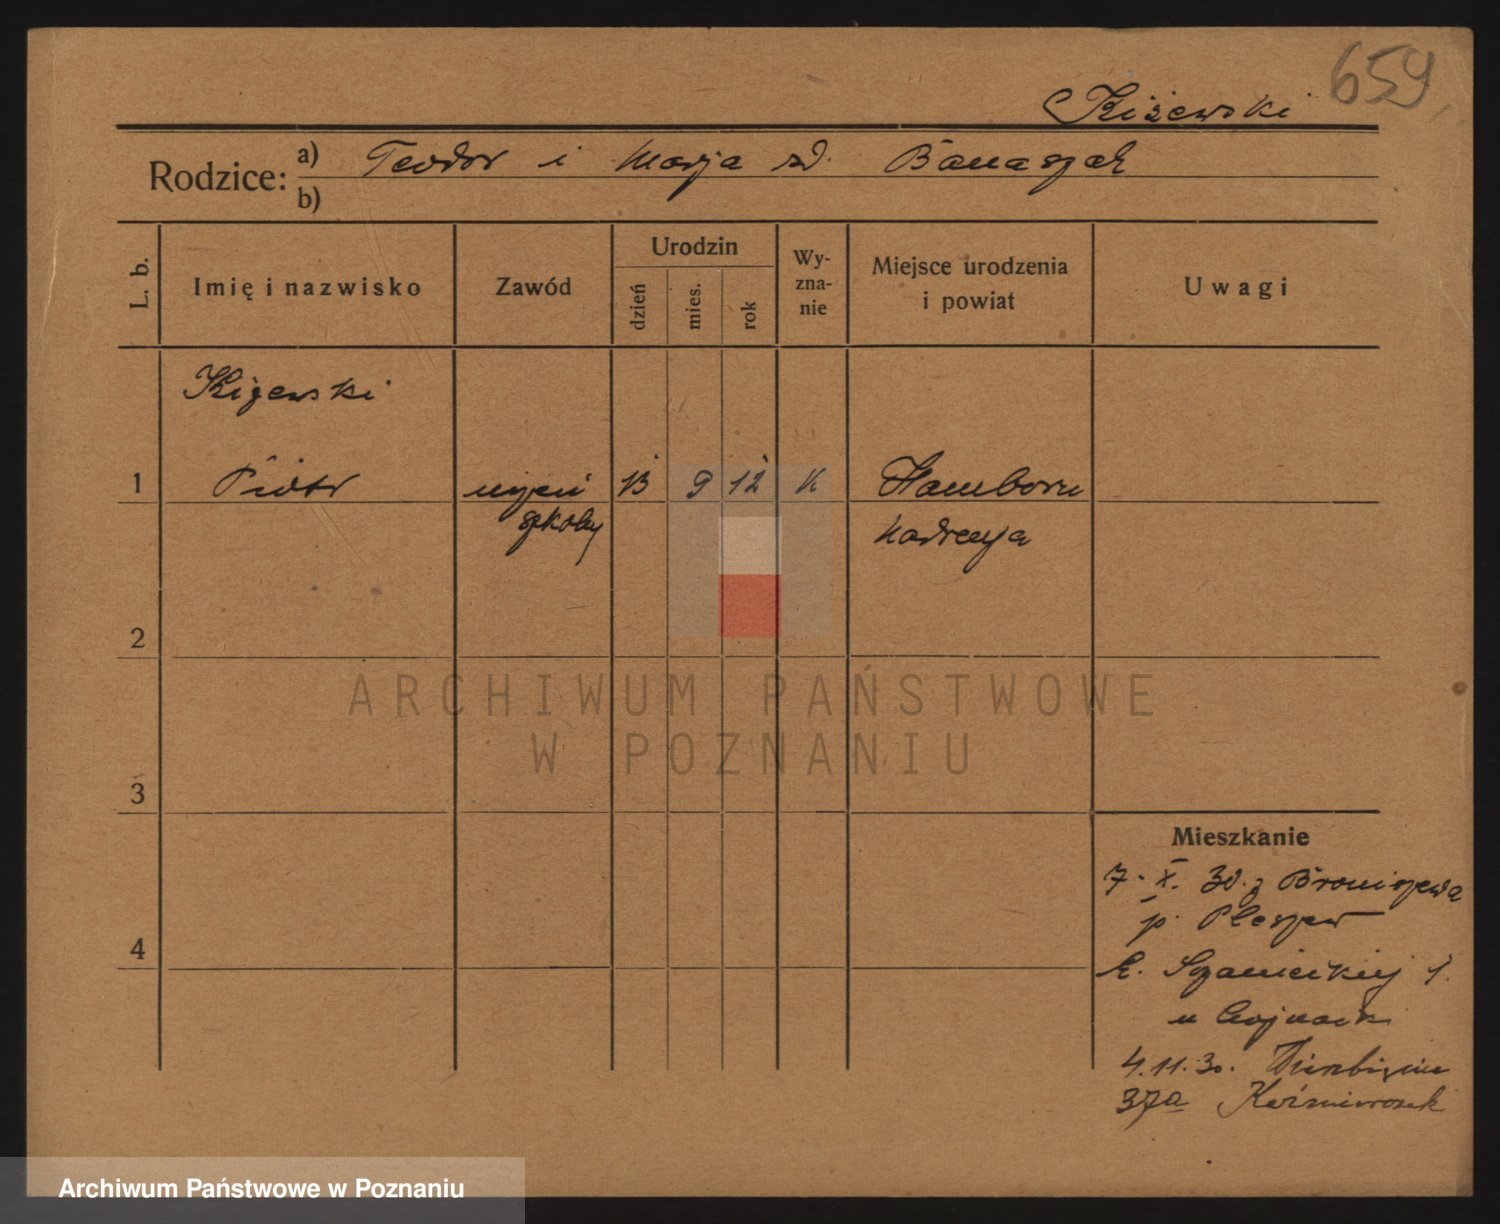 659
Kiżewski
Rodzice: a) Teodor i Marja zd. Banaszak
b)
L. b.
Imię i nazwisko
Zawód
Urodzin
dzień
mies.
rok
Wy-
zna-
nie
Miejsce urodzenia
i powiat
Uwagi
Kiżewski
1 Piotr uczeń 13 9 12 k Hamborn
szkoły Nadrenja
2
3
4
Mieszkanie
7. X. 30. z Broniszewa
p. Pleszew
Szanieckiej
u
4.11.30. Wierzbięcice
37a Kaźmierczak
ARCHIWUM PAŃSTWOWE
W POZNANIU
Archiwum Państwowe w Poznaniu